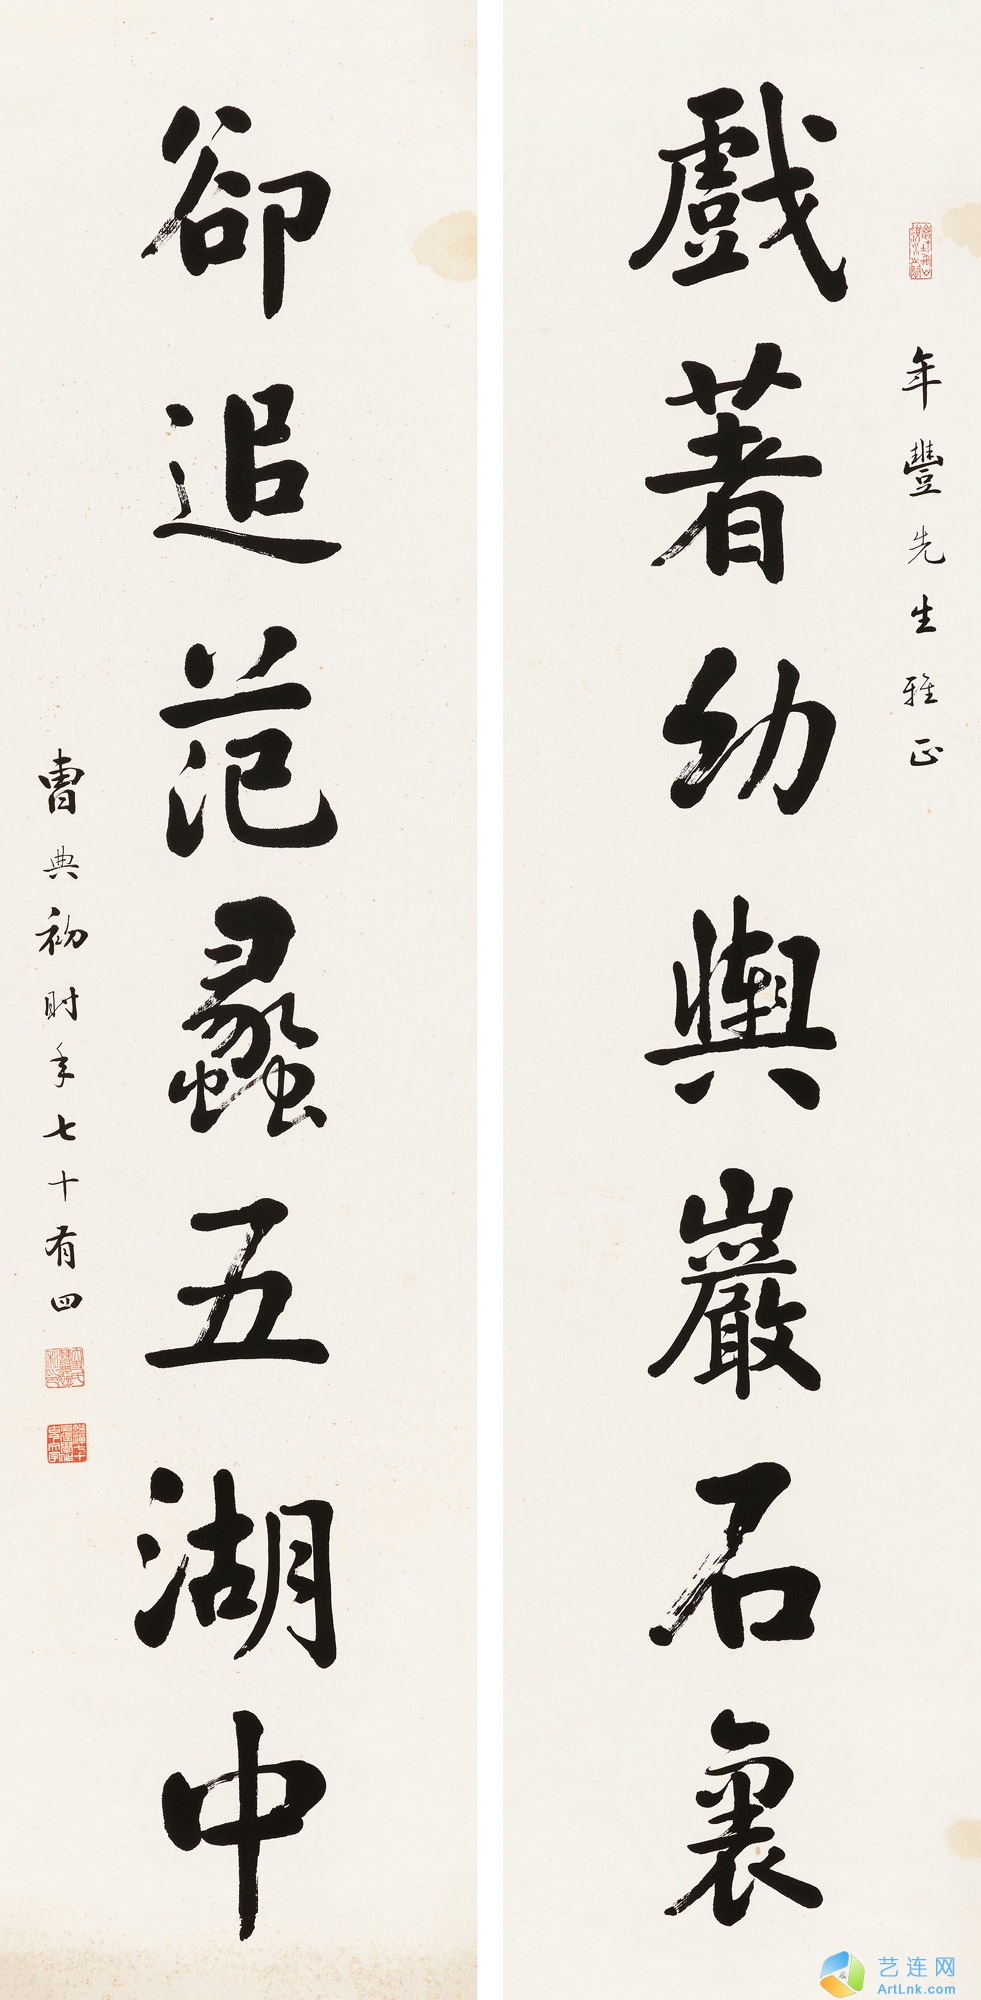 年豐先生雅正
戲著幼輿巖石裏
卻追范蠡五湖中
曹典初時年七十有四
艺连网
ArtLnk.com